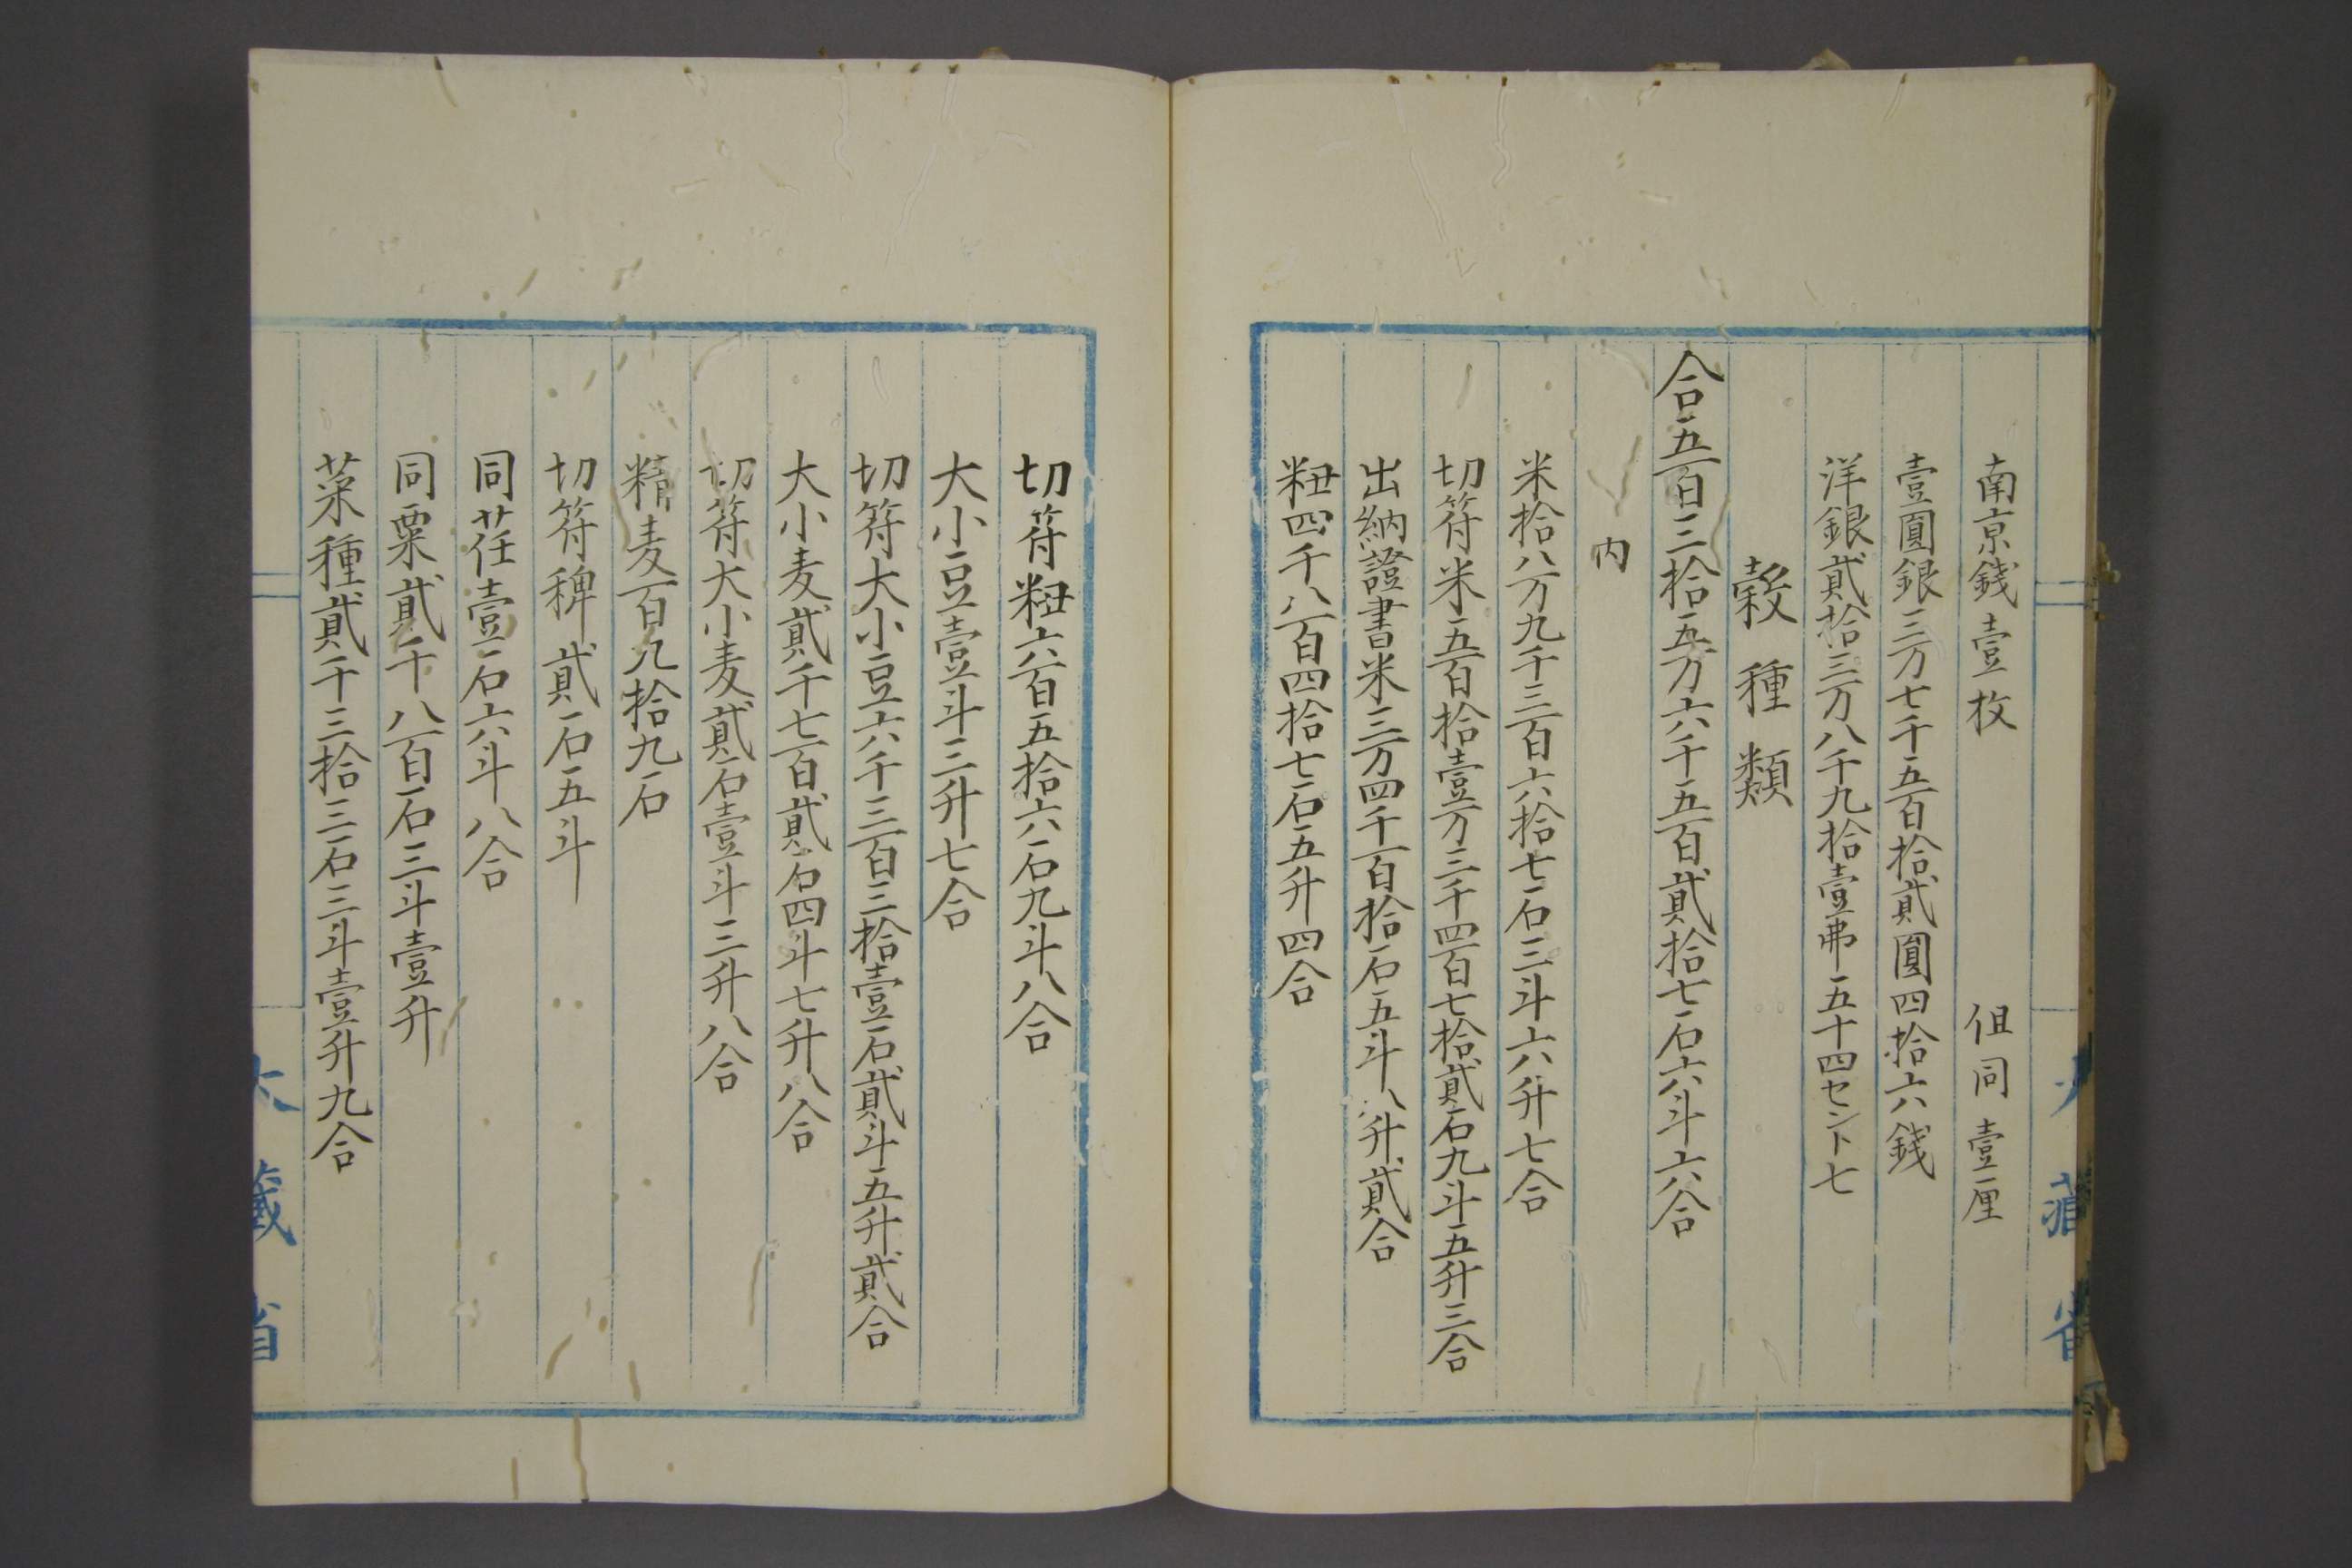 南京銭壹枚　但同壹厘
壹圓銀三万七千五百拾貳圓四拾六銭
洋銀貳拾三万八千九拾壹弗五十四セント七
穀種類
合五百三拾五万六千五百貳拾七石六斗六合
内
米拾八万九千三百六拾七石三斗六升七合
切符米五百拾壹万三千四百七拾貳石九斗五升三合
出納證書米三万四千百拾石五斗八升貳合
粈四千八百四拾七石五升四合
大藏省
切符粈六百五拾六石九斗八合
大小豆壹斗三升七合
切符大小豆六千三百三拾壹石貳斗五升貳合
大小麦貳千七百貳石四斗七升八合
切符大小麦貳石壹斗三升八合
精麦百九拾九石
切符稗貳石五斗
同荏壹石六斗八合
同粟貳千八百石三斗壹升
菜種貳千三拾三石三斗壹升九合
大藏省